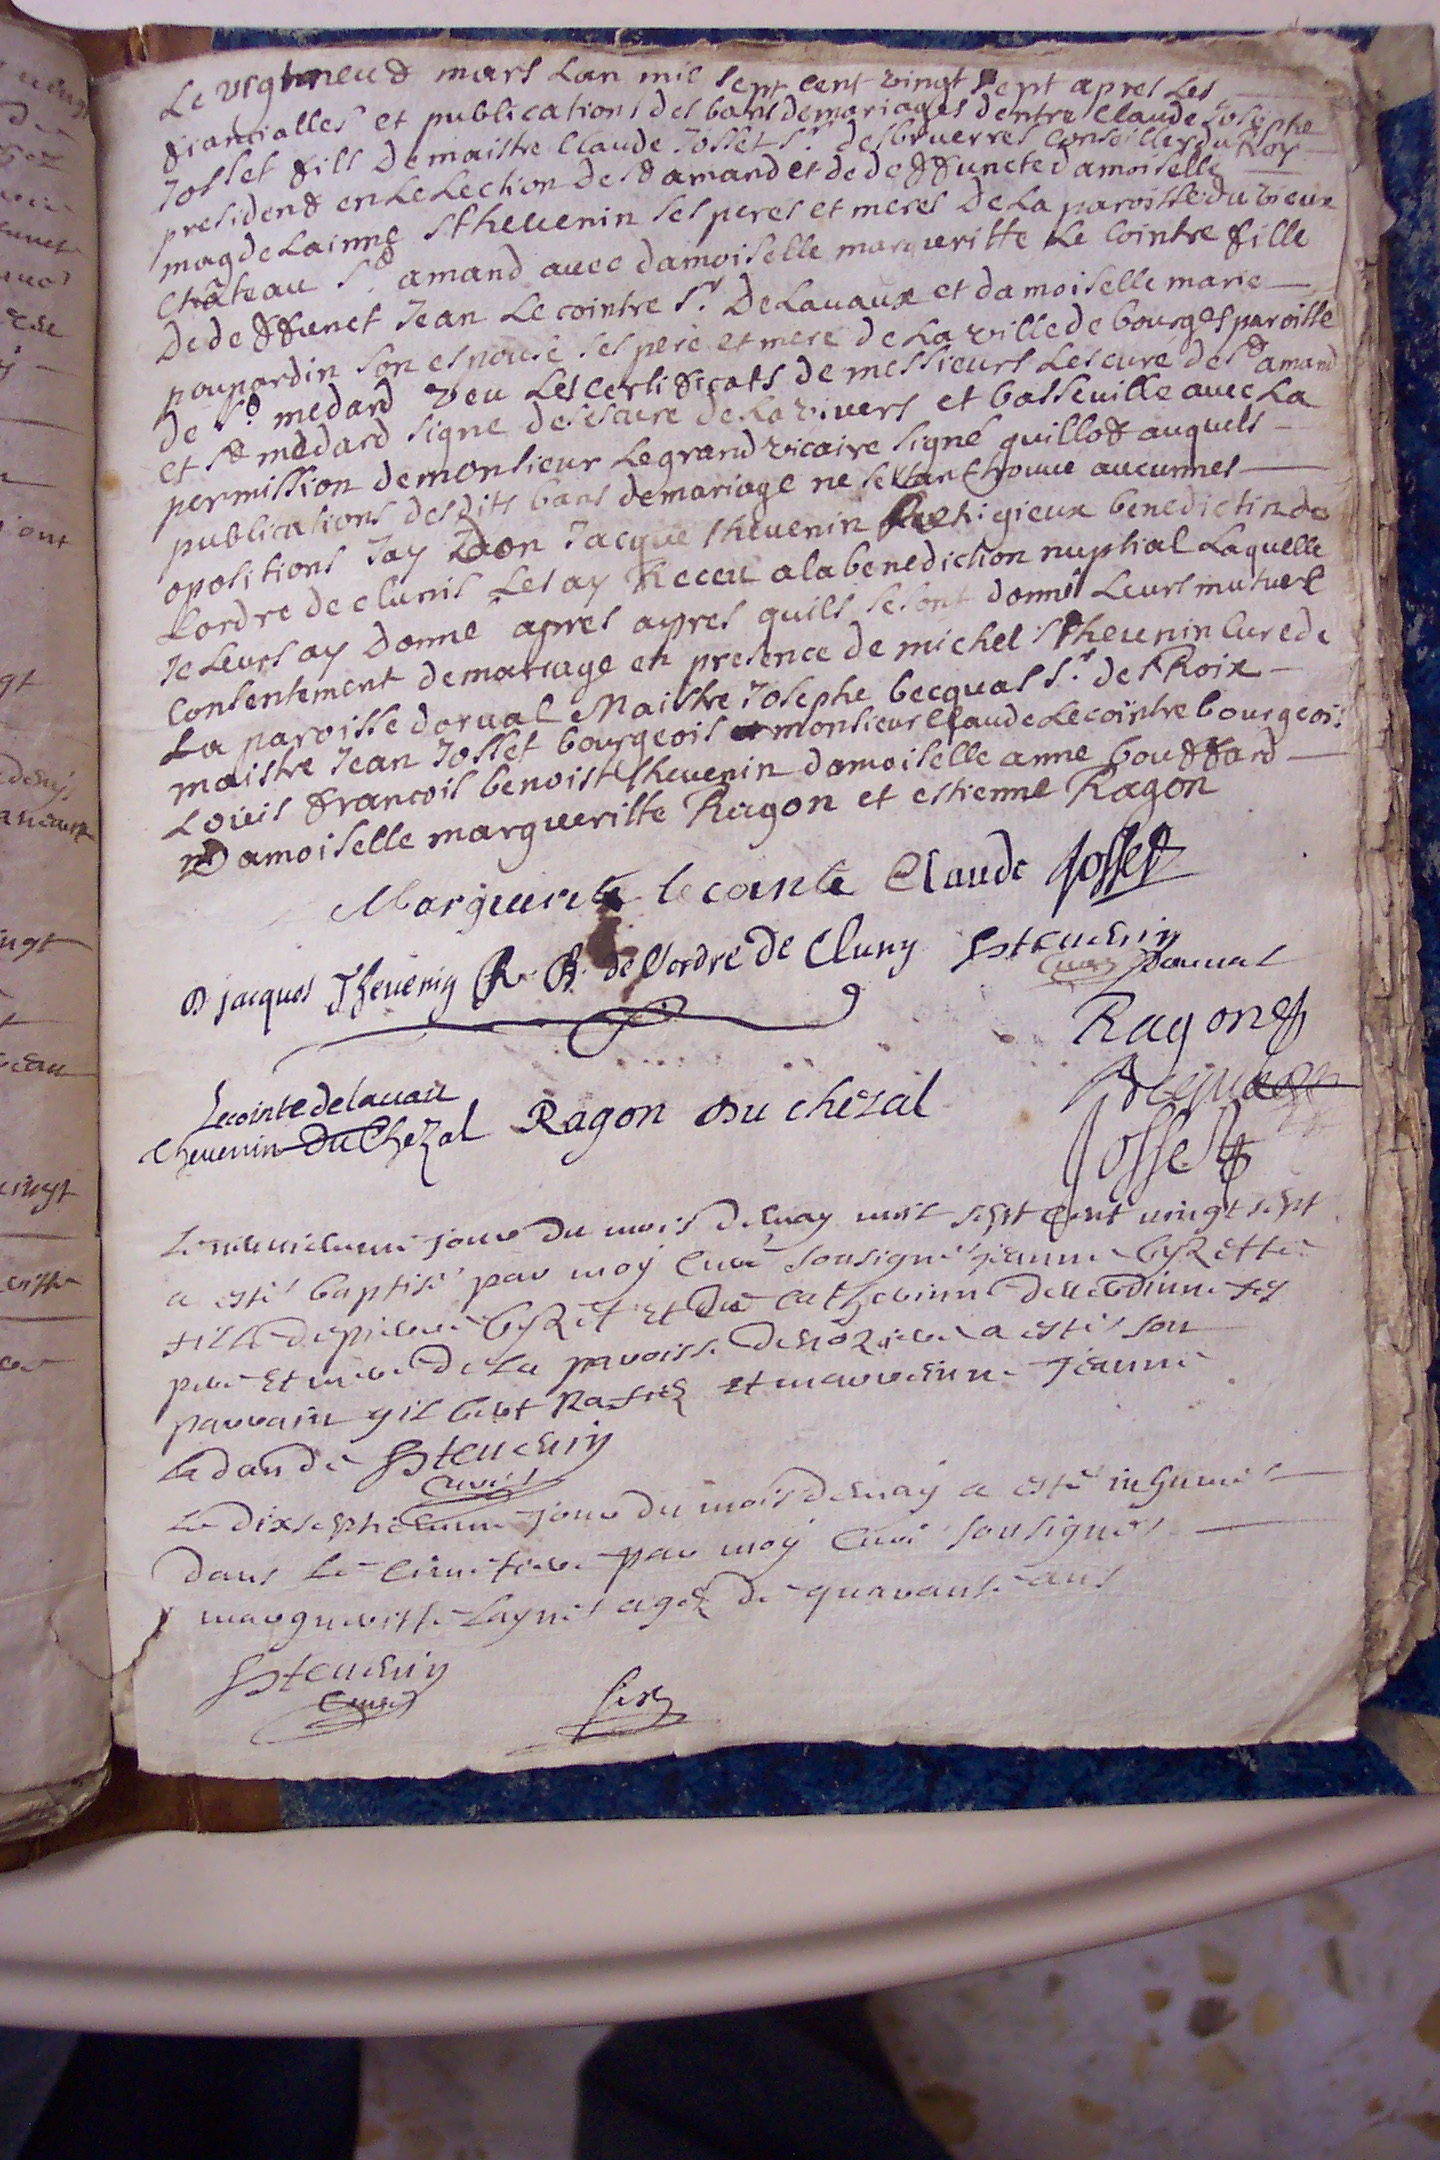 Le vightneuf mars Lan mil sept cent vingt sept apres Les
fiancialles et publications des bans de mariages dentre Claude Josephe
Josset fils De maistre Claude Josset Sr. des bruerres Conseiller du Roy
president en LeLection de St amand et de deffuncte Damoiselle
magdelainne Sthevenin ses peres et meres De La paroisse du vieux
Château St. amand avec damoiselle margueritte Le Cointre fille
De deffunct Jean Le cointre Sr. De Lavaux et damoiselle marie
poupardin son espouse ses pere et mere de La ville de bourges paroisse
de St. medard veu Les certifficats de messieurs Les cure de St amand
et St medard signe de Lescure de La vivers et basseville avec La
permission de monsieur Le grand vicaire signé guillot auquels
publications desdits bans de mariage ne sestan trouve aucunnes
opositions Jay Don Jacque thevenin Relligieux benedictin de
Lordre de clunis Les ay Receu a la benediction nuptial Laquelle
Je Leurs ay Donné apres apres quils se sont donné Leurs mutuel
Consentement de mariage en presence de michel Sthevenin Cure de
La paroisse dorval Maistre Josephe becquas Sr. de Roix
maistre Jean Josset bourgeois monsieur Claude Lecointre bourgeois
Louis francois benoist thevenin damoiselle anne bouffard
Damoiselle margueritte Ragon et estienne Ragon
Marguerite le cointe Claude Josset
D jacques Thevenin R. B. de l'ordre de Cluny Sthevenin
Curé Dorval
Ragon
Lecointe de lavau
Thevenin Du Chezal Ragon Du chézal
Josset
Le neuvieme jour du mois de may mil sept cent vingt sept
a esté baptisé par moy Curé sousigné jeanne
fille de pierre et de Catherinne ses
pere et mere De La paroisse de a esté son
parrain gilbert et marrenne jeanne
Sthevenin
Curé
Le dixseptieme jour du mois de may a esté inhumé
dans Le Cimetiere par moy Curé sousigné
margueritte agé de quarante ans
Sthevenin
Curé